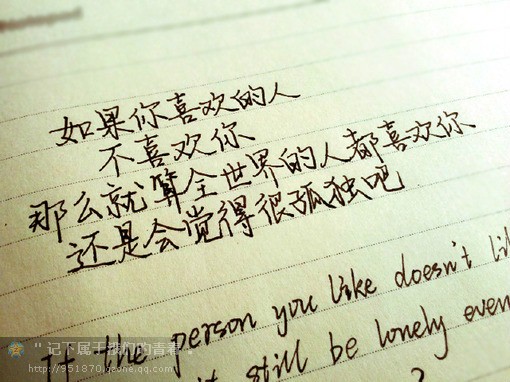 如果你喜欢的人
不喜欢你
那么就算全世界的人都喜欢你
还是会觉得很孤独吧
If the person you like doesn't
still be lonely even
" 记下属于我们的青春 "
http://951870.qzone.qq.com